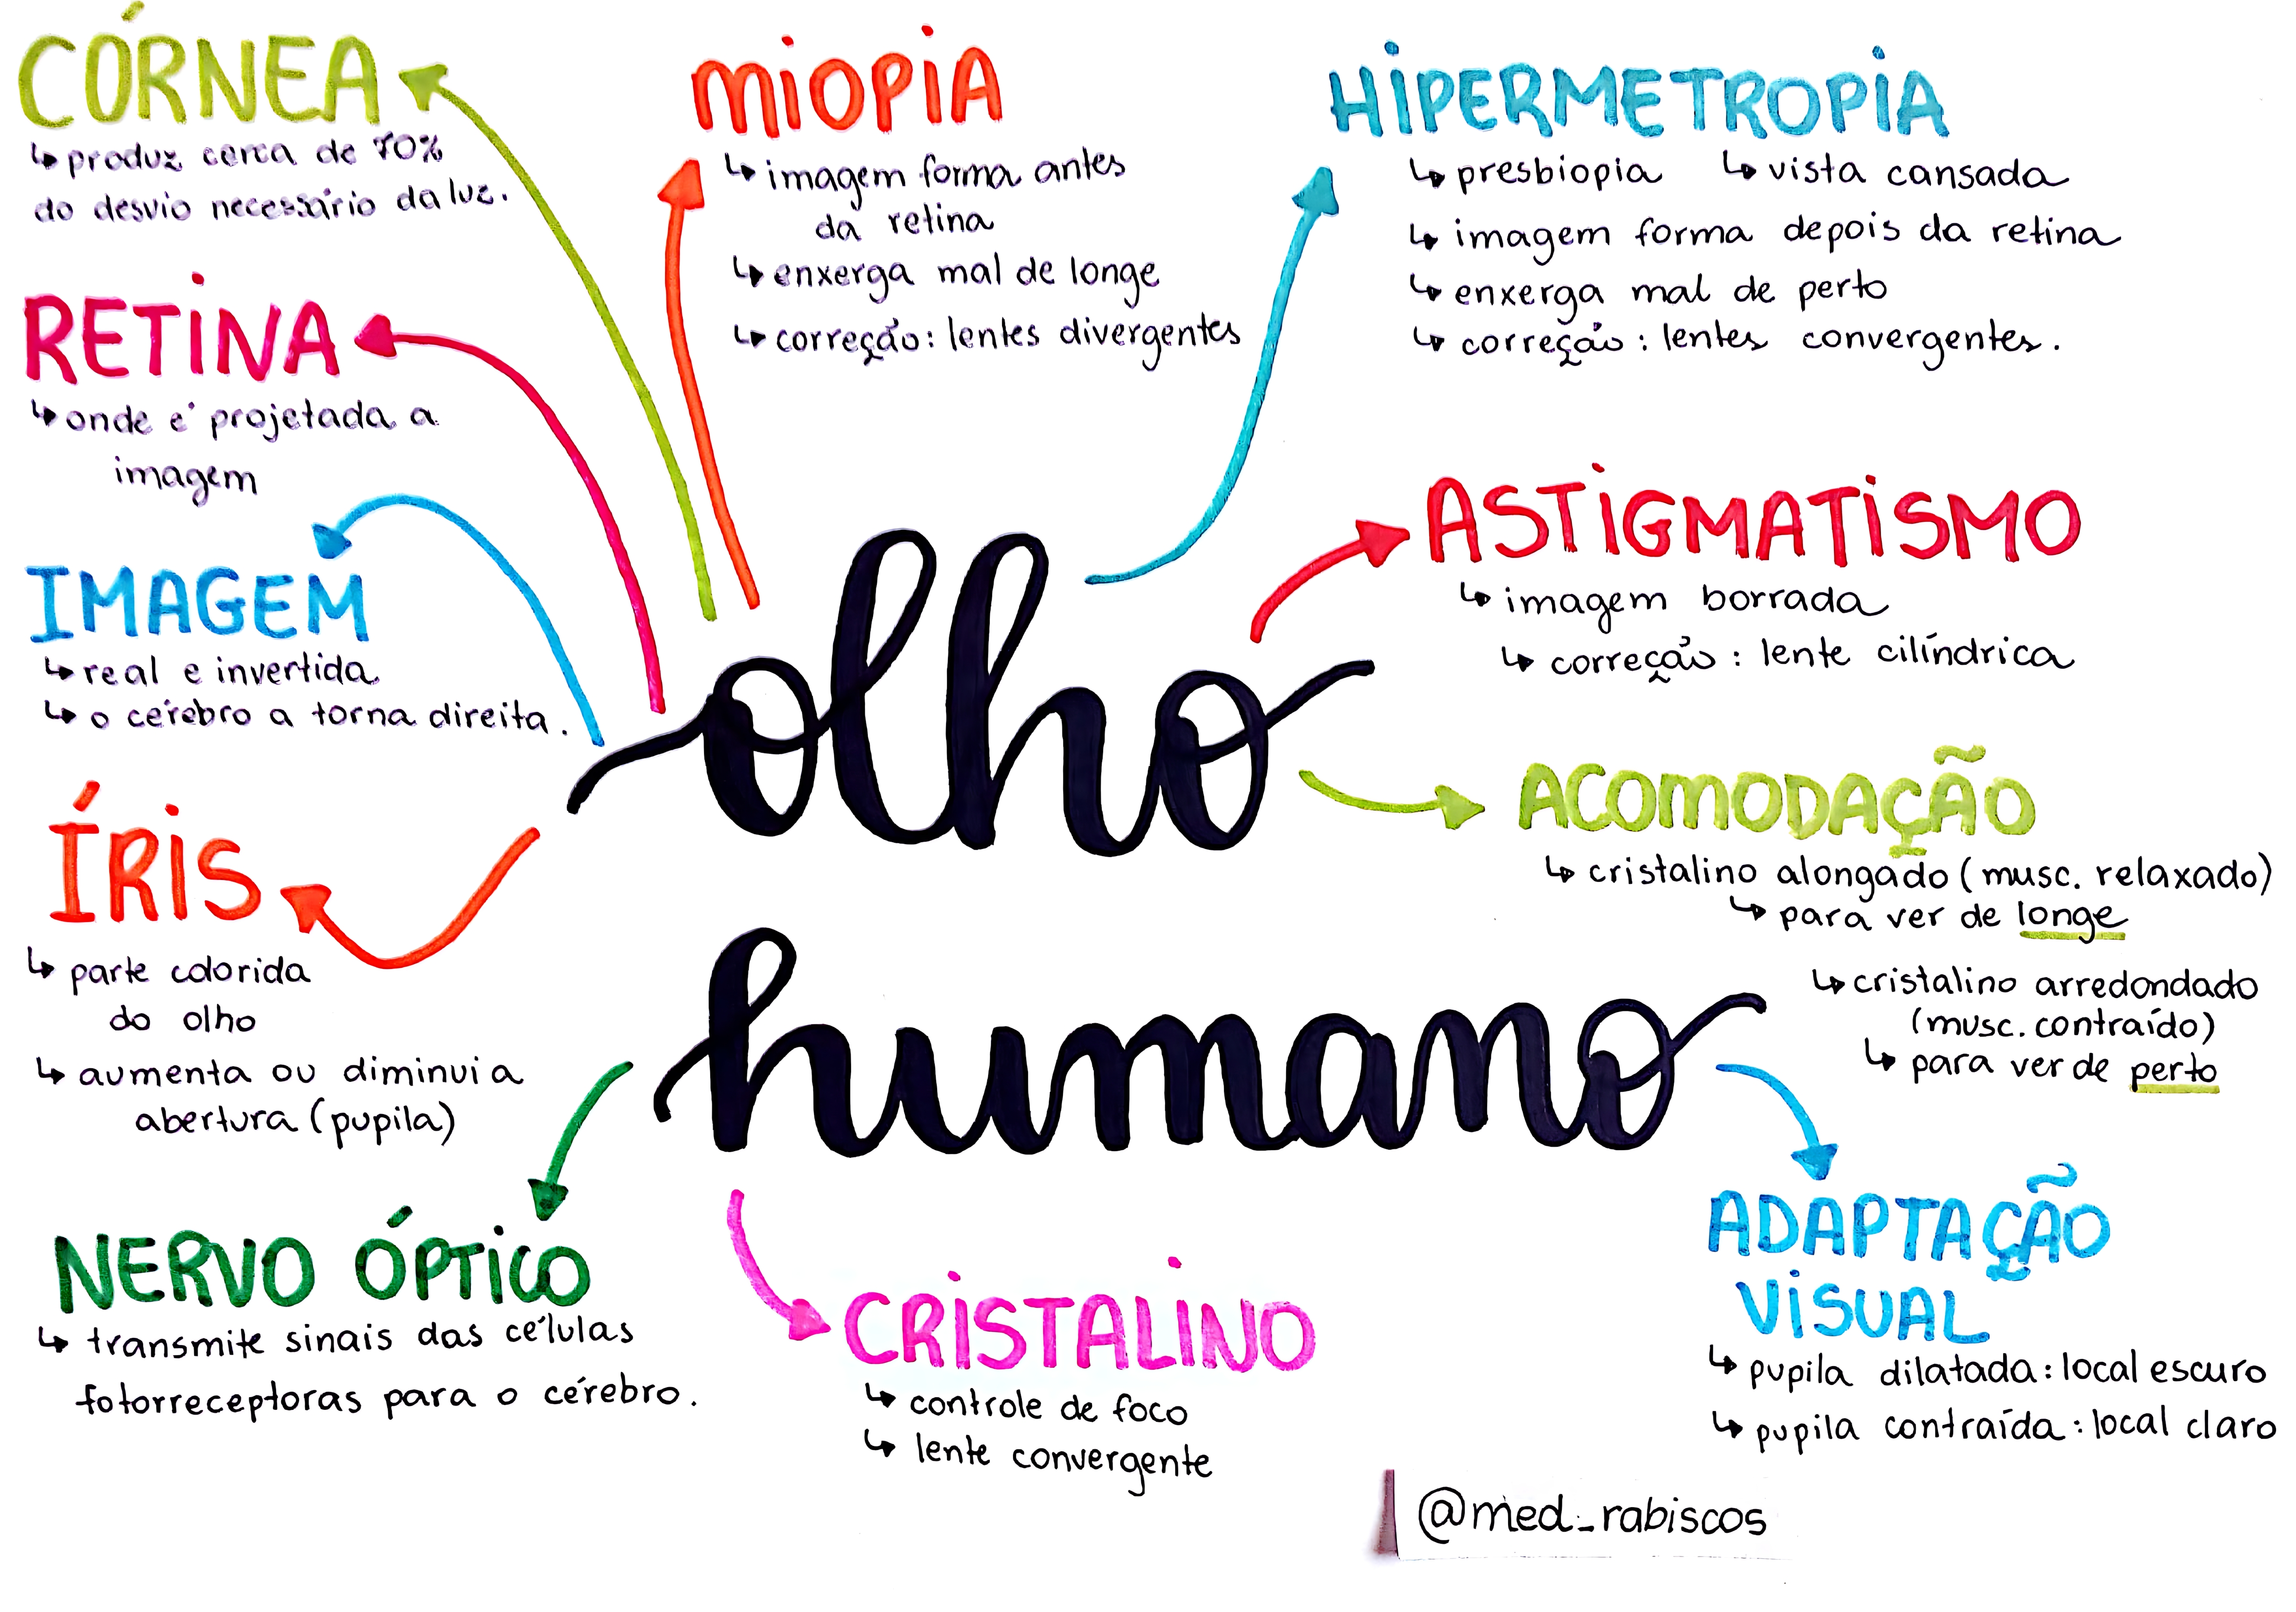 CÓRNEA
↳ produz cerca de 70%
do desvio necessário da luz.
RETINA
↳ onde é projetada a
imagem
IMAGEM
↳ real e invertida
↳ o cérebro a torna direita.
ÍRIS
↳ parte colorida
do olho
↳ aumenta ou diminui a
abertura (pupila)
NERVO ÓPTICO
↳ transmite sinais das células
fotorreceptoras para o cérebro.
MIOPIA
↳ imagem forma antes
da retina
↳ enxerga mal de longe
↳ correção: lentes divergentes
olho
humano
CRISTALINO
↳ controle de foco
↳ lente convergente
HIPERMETROPIA
↳ presbiopia ↳ vista cansada
↳ imagem forma depois da retina
↳ enxerga mal de perto
↳ correção: lentes convergentes.
ASTIGMATISMO
↳ imagem borrada
↳ correção: lente cilíndrica
ACOMODAÇÃO
↳ cristalino alongado (musc. relaxado)
↳ para ver de longe
↳ cristalino arredondado
(musc. contraído)
↳ para ver de perto
ADAPTAÇÃO
VISUAL
↳ pupila dilatada: local escuro
↳ pupila contraída: local claro
@med_rabiscos